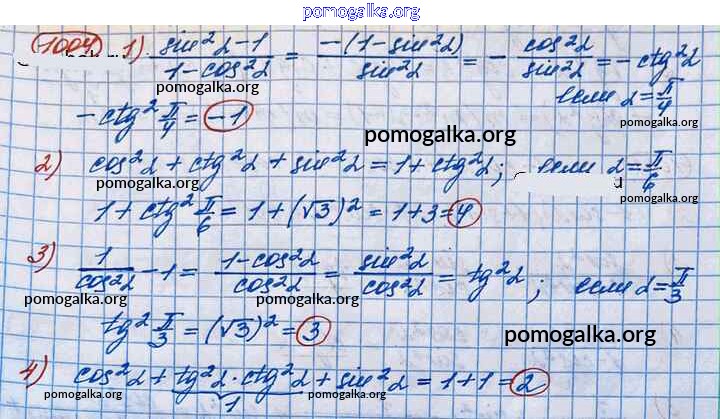 pomogalka.org
1004 1) (sin²α-1)/(1-cos²α) = (-(1-sin²α))/(sin²α) = - cos²α/sin²α = - ctg²α
pomogalka.org
если α=π/4
-ctg² π/4 = -1
pomogalka.org
2) cos²α + ctg²α + sin²α = 1 + ctg²α; если α=π/6
pomogalka.org
1 + ctg² π/6 = 1 + (√3)² = 1+3=4
3) 1/cos²α - 1 = (1-cos²α)/cos²α = sin²α/cos²α = tg²α; если α=π/3
pomogalka.org pomogalka.org
tg² π/3 = (√3)² = 3
pomogalka.org
4) cos²α + tg²α · ctg²α + sin²α = 1+1=2
pomogalka.org 1 pomogalka.org pomogalka.org